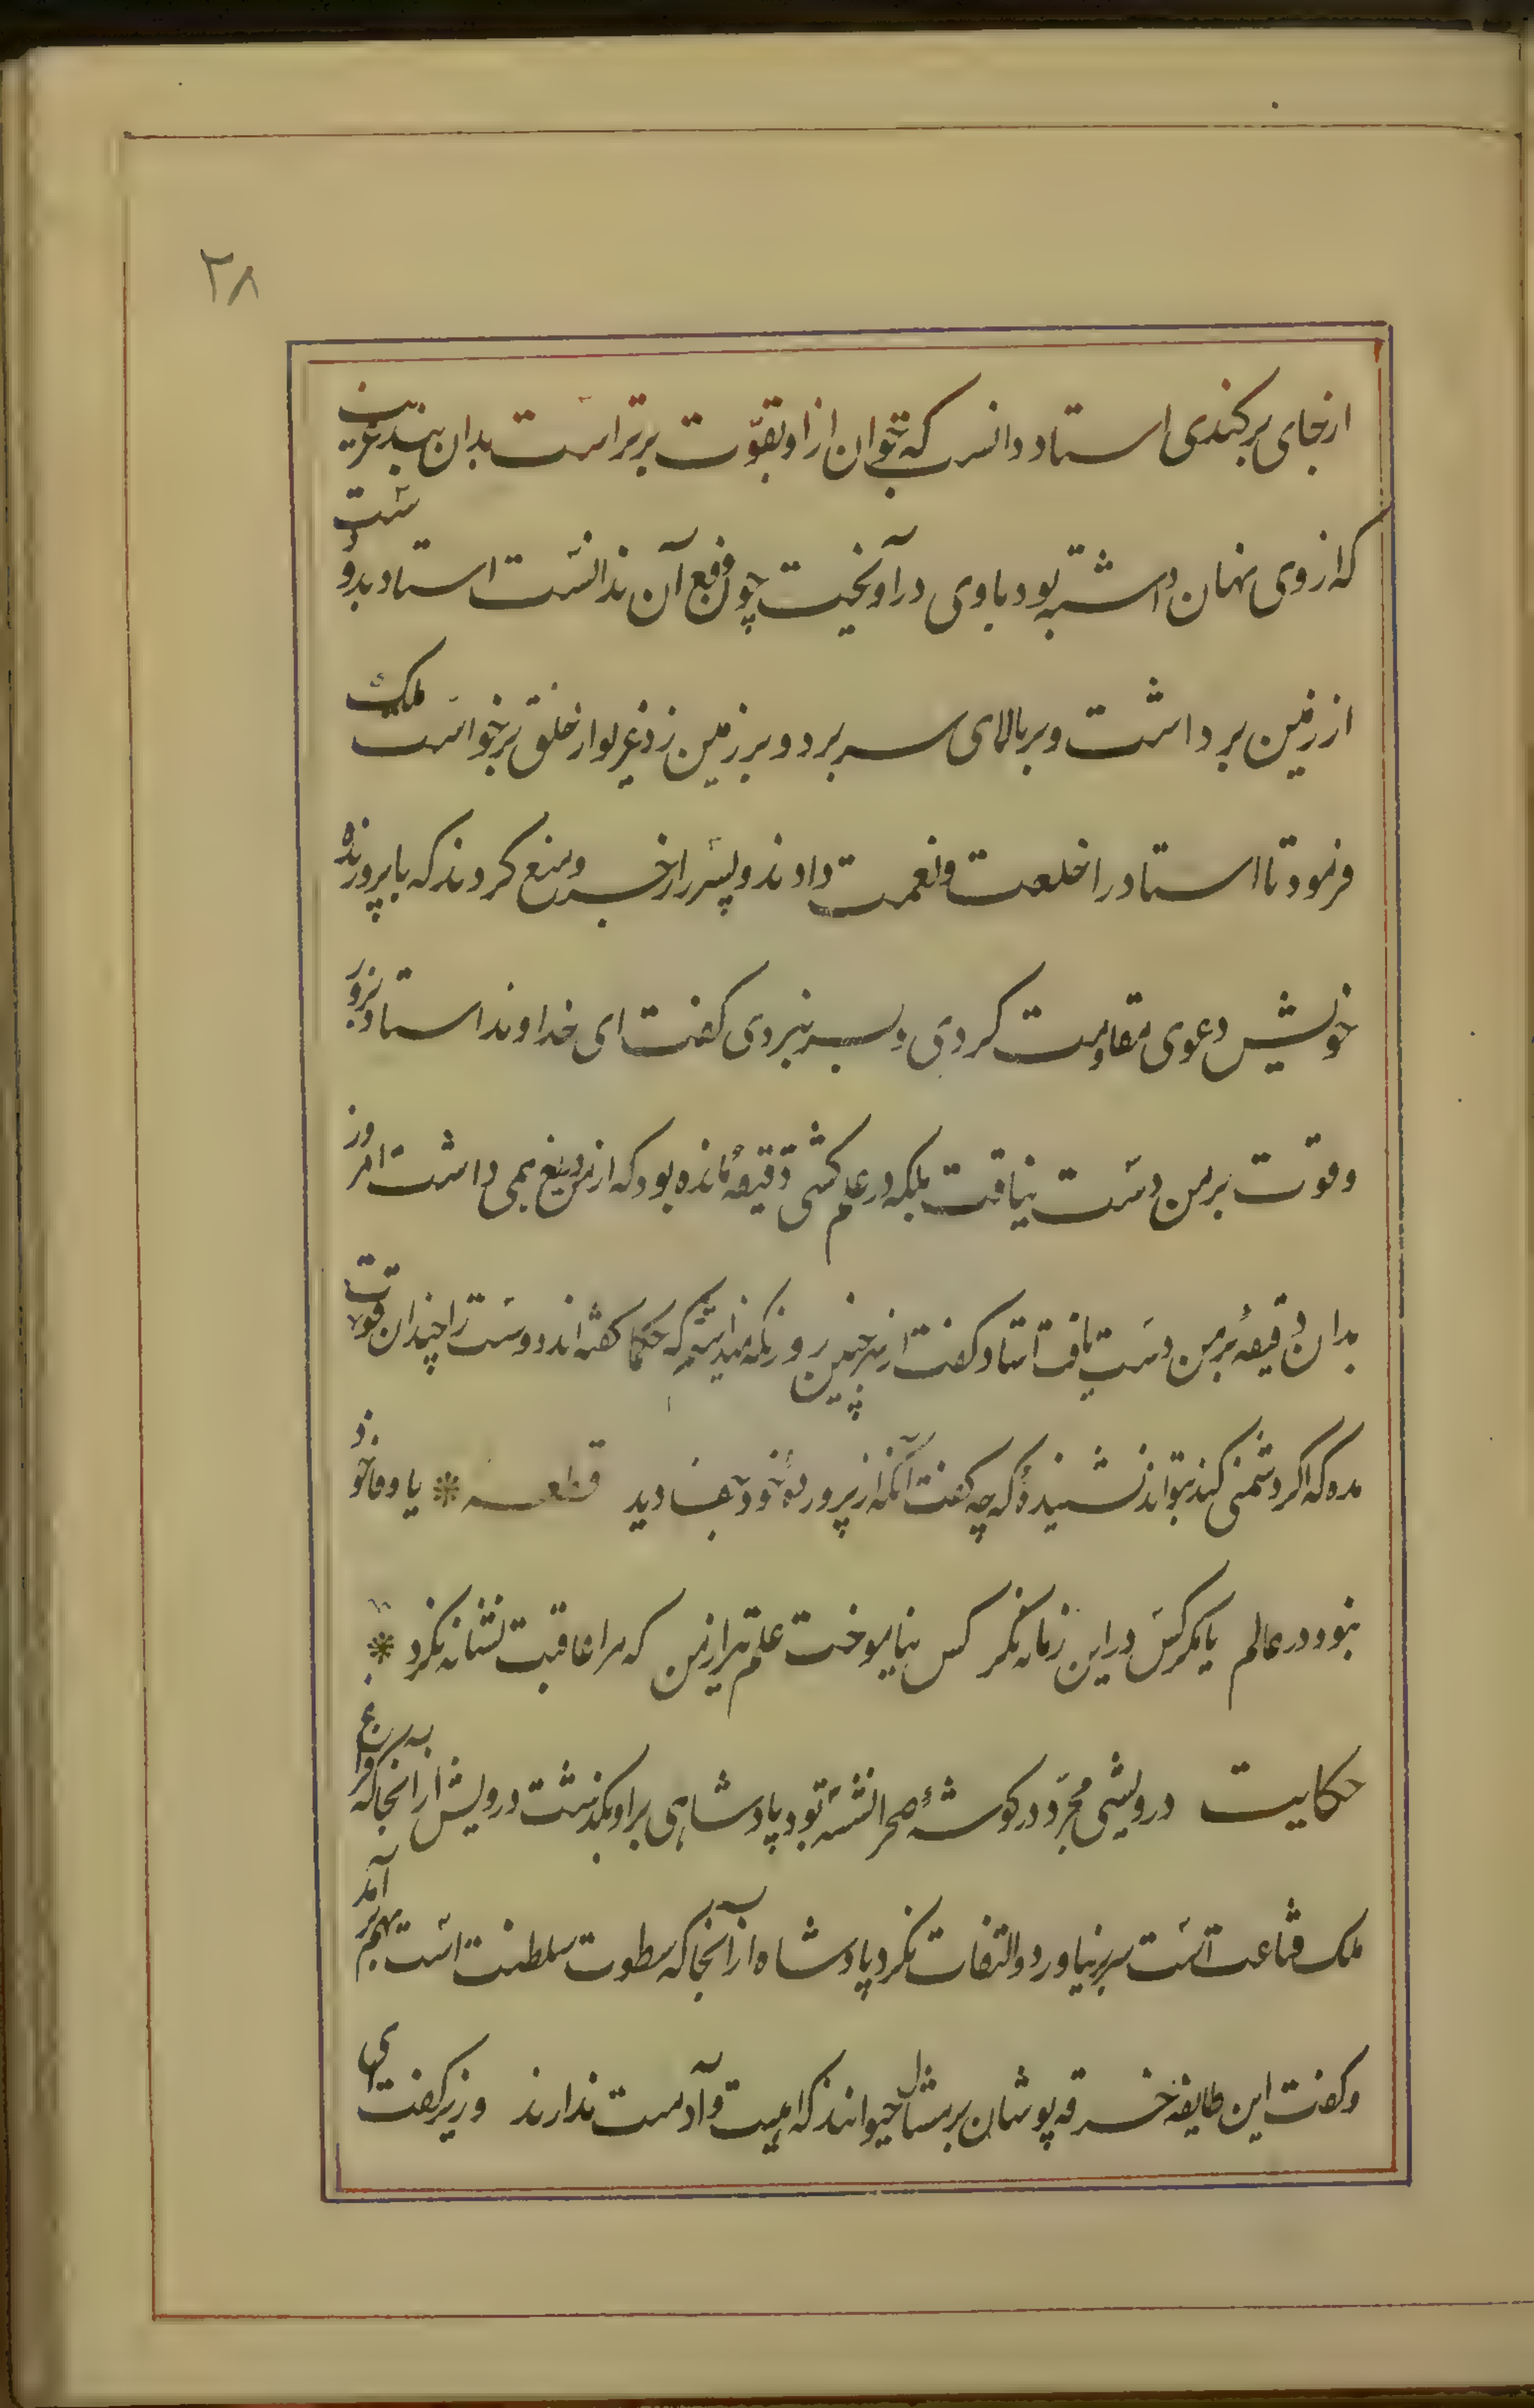 ۲۸
ازجای برکندی استاد دانست که جوان ازاو بقوّت برتر است بدان بند غریب
که از وی نهان داشته بود باوی درآویخت چون دفع آن ندانست استاد بدو دست
از زمین برداشت و بر بالای سر برد و بر زمین زد غریو از خلق برخواست ملک
فرمود تا استاد را خلعت و نعمت دادند و پسر را زجر و منع کردند که با پرورنده
خویش دعوی مقاومت کردی و بسر نبردی کفت ای خداوند استاد بزور
وقوت بر من دست نیافت بلکه در علم کشتی دقیقهٔ مانده بود که از من دریغ همی داشت امروز
بدان دقیقهٔ بر من دست یافت استاد کفت از بهر چنین روز نکه میداشتم که حکما کفته اند دوست را چندان قوت
مده که اکر دشمنی کند بتواند نشنیدهٔ که چه کفت آنکه از پروردهٔ خود جفا دید قطعه * یا وفا خود
نبود در عالم یا مکر کس دراین زمانه نکرد کس نیاموخت علم تیر از من که مرا عاقبت نشانه نکرد *
حکایت درویشی مجرّد در کوشهٔ صحرا نشسته بود پادشاهی بر او بکذشت درویش از انجا که فراغ
ملک قناعت است سر برنیاورد و التفات نکرد پادشاه از آنجا که سطوت سلطنت است بهم برآمد
و کفت این طایفهٔ خرقه پوشان بر مثال حیوانند که اهلیت و آدمیت ندارند وزیر کفت ای